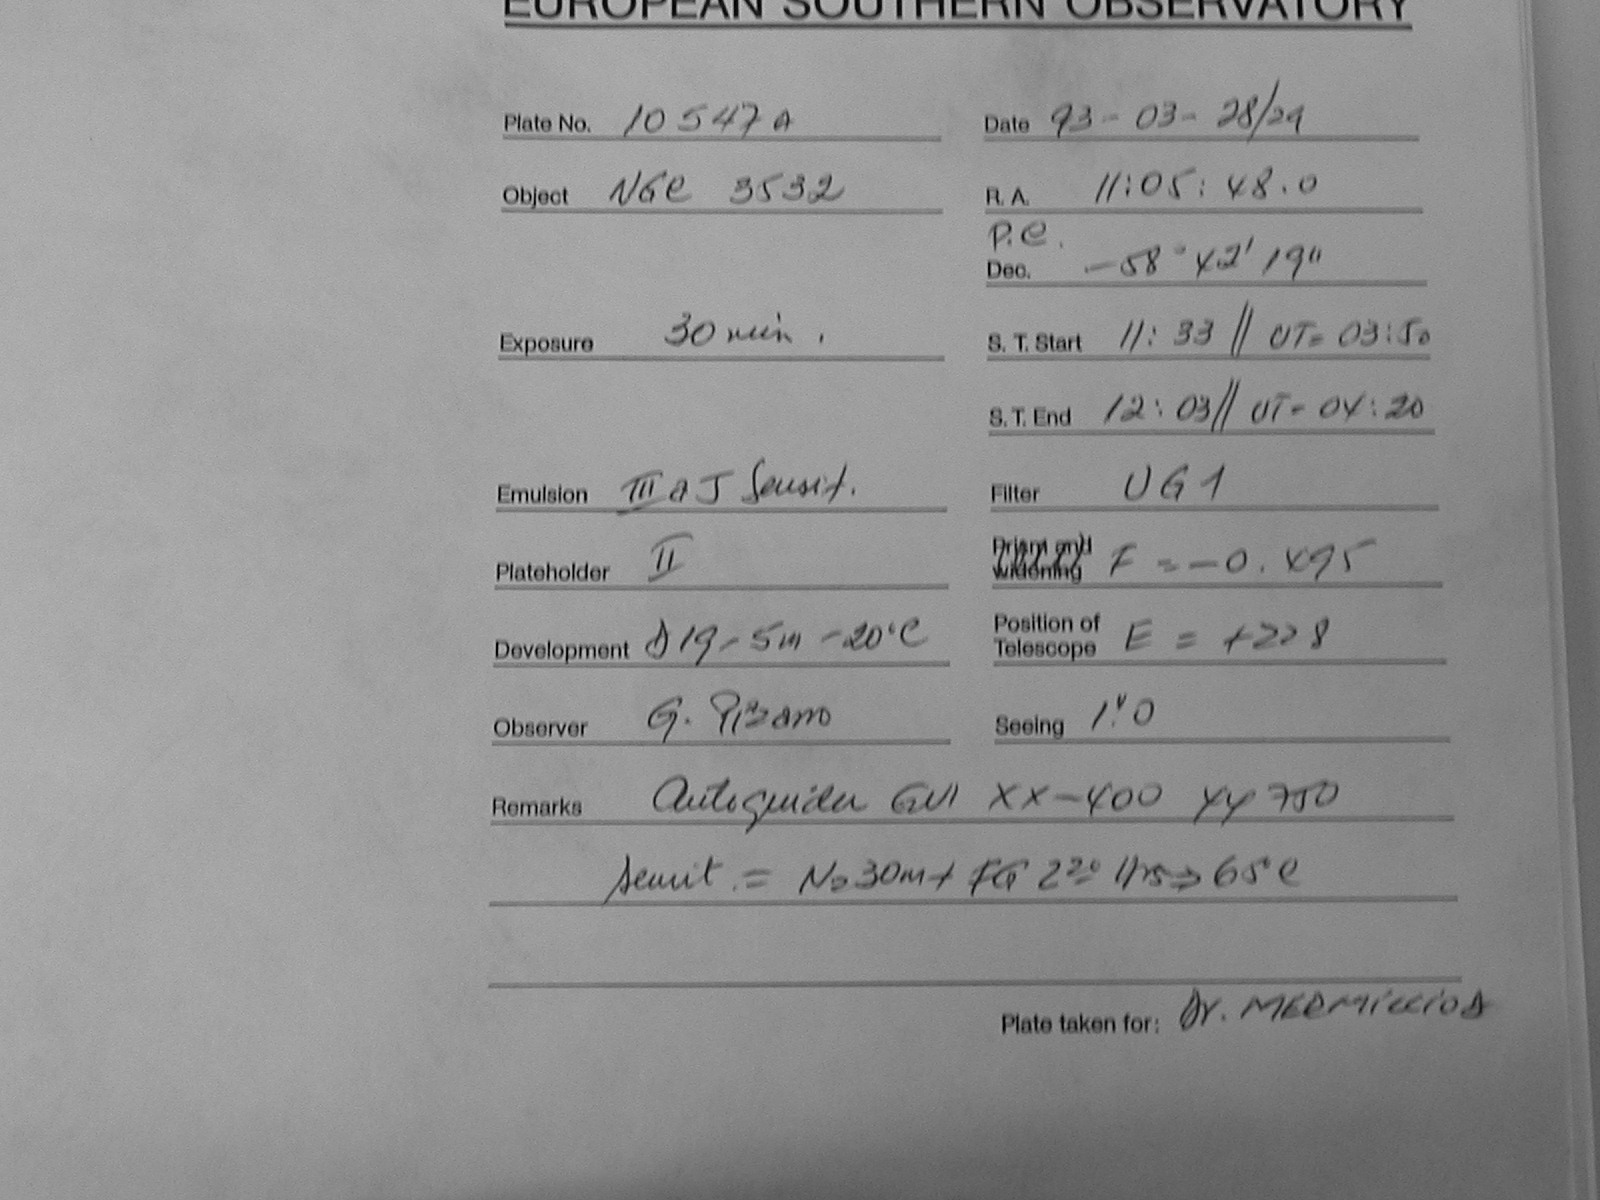 EUROPEAN SOUTHERN OBSERVATORY
Plate No. 10547A Date 93-03-28/29
Object NGC 3532 R. A. 11:05:48.0
P.C.
Dec. -58° 42' 19"
Exposure 30 min. S. T. Start 11:33 // UT= 03:50
S. T. End 12:03 // UT= 04:20
Emulsion III a J Sensit. Filter UG1
Plateholder II Prism and widening F = -0.495
Development D19-5m-20°C Position of Telescope E = +228
Observer G. Pizarro Seeing 1."0
Remarks Autoguider GUI XX-400 YY 750
Sensit. = N2 30m + FG 2 Hrs => 65°C
Plate taken for: Dr. MERMILLIOD